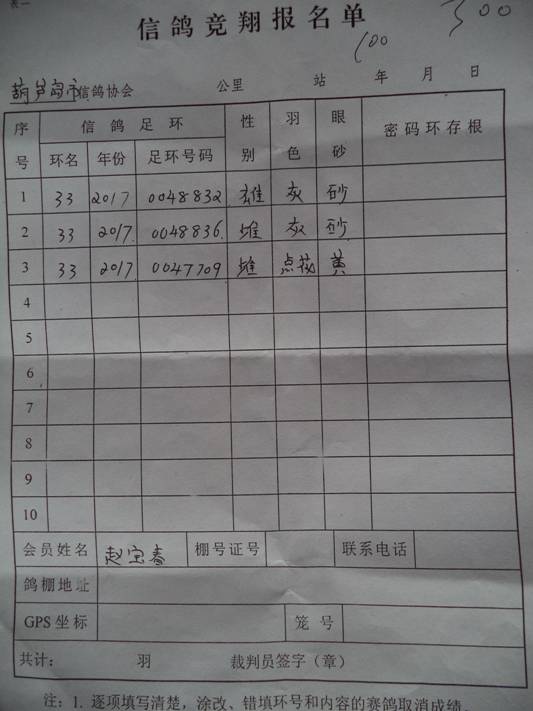 表一
信鸽竞翔报名单
300
100
葫芦岛市信鸽协会 公里 站 年 月 日
序号 信鸽足环 性别 羽色 眼砂 密码环存根
环名 年份 足环号码
1 33 2017 0048832 雄 灰 砂
2 33 2017 0048836 雄 灰 砂
3 33 2017 0047709 雄 点花 黄
4
5
6
7
8
9
10
会员姓名 赵宝春 棚号证号 联系电话
鸽棚地址
GPS坐标 笼号
共计: 羽 裁判员签字(章)
注:1. 逐项填写清楚,涂改、错填环号和内容的赛鸽取消成绩。